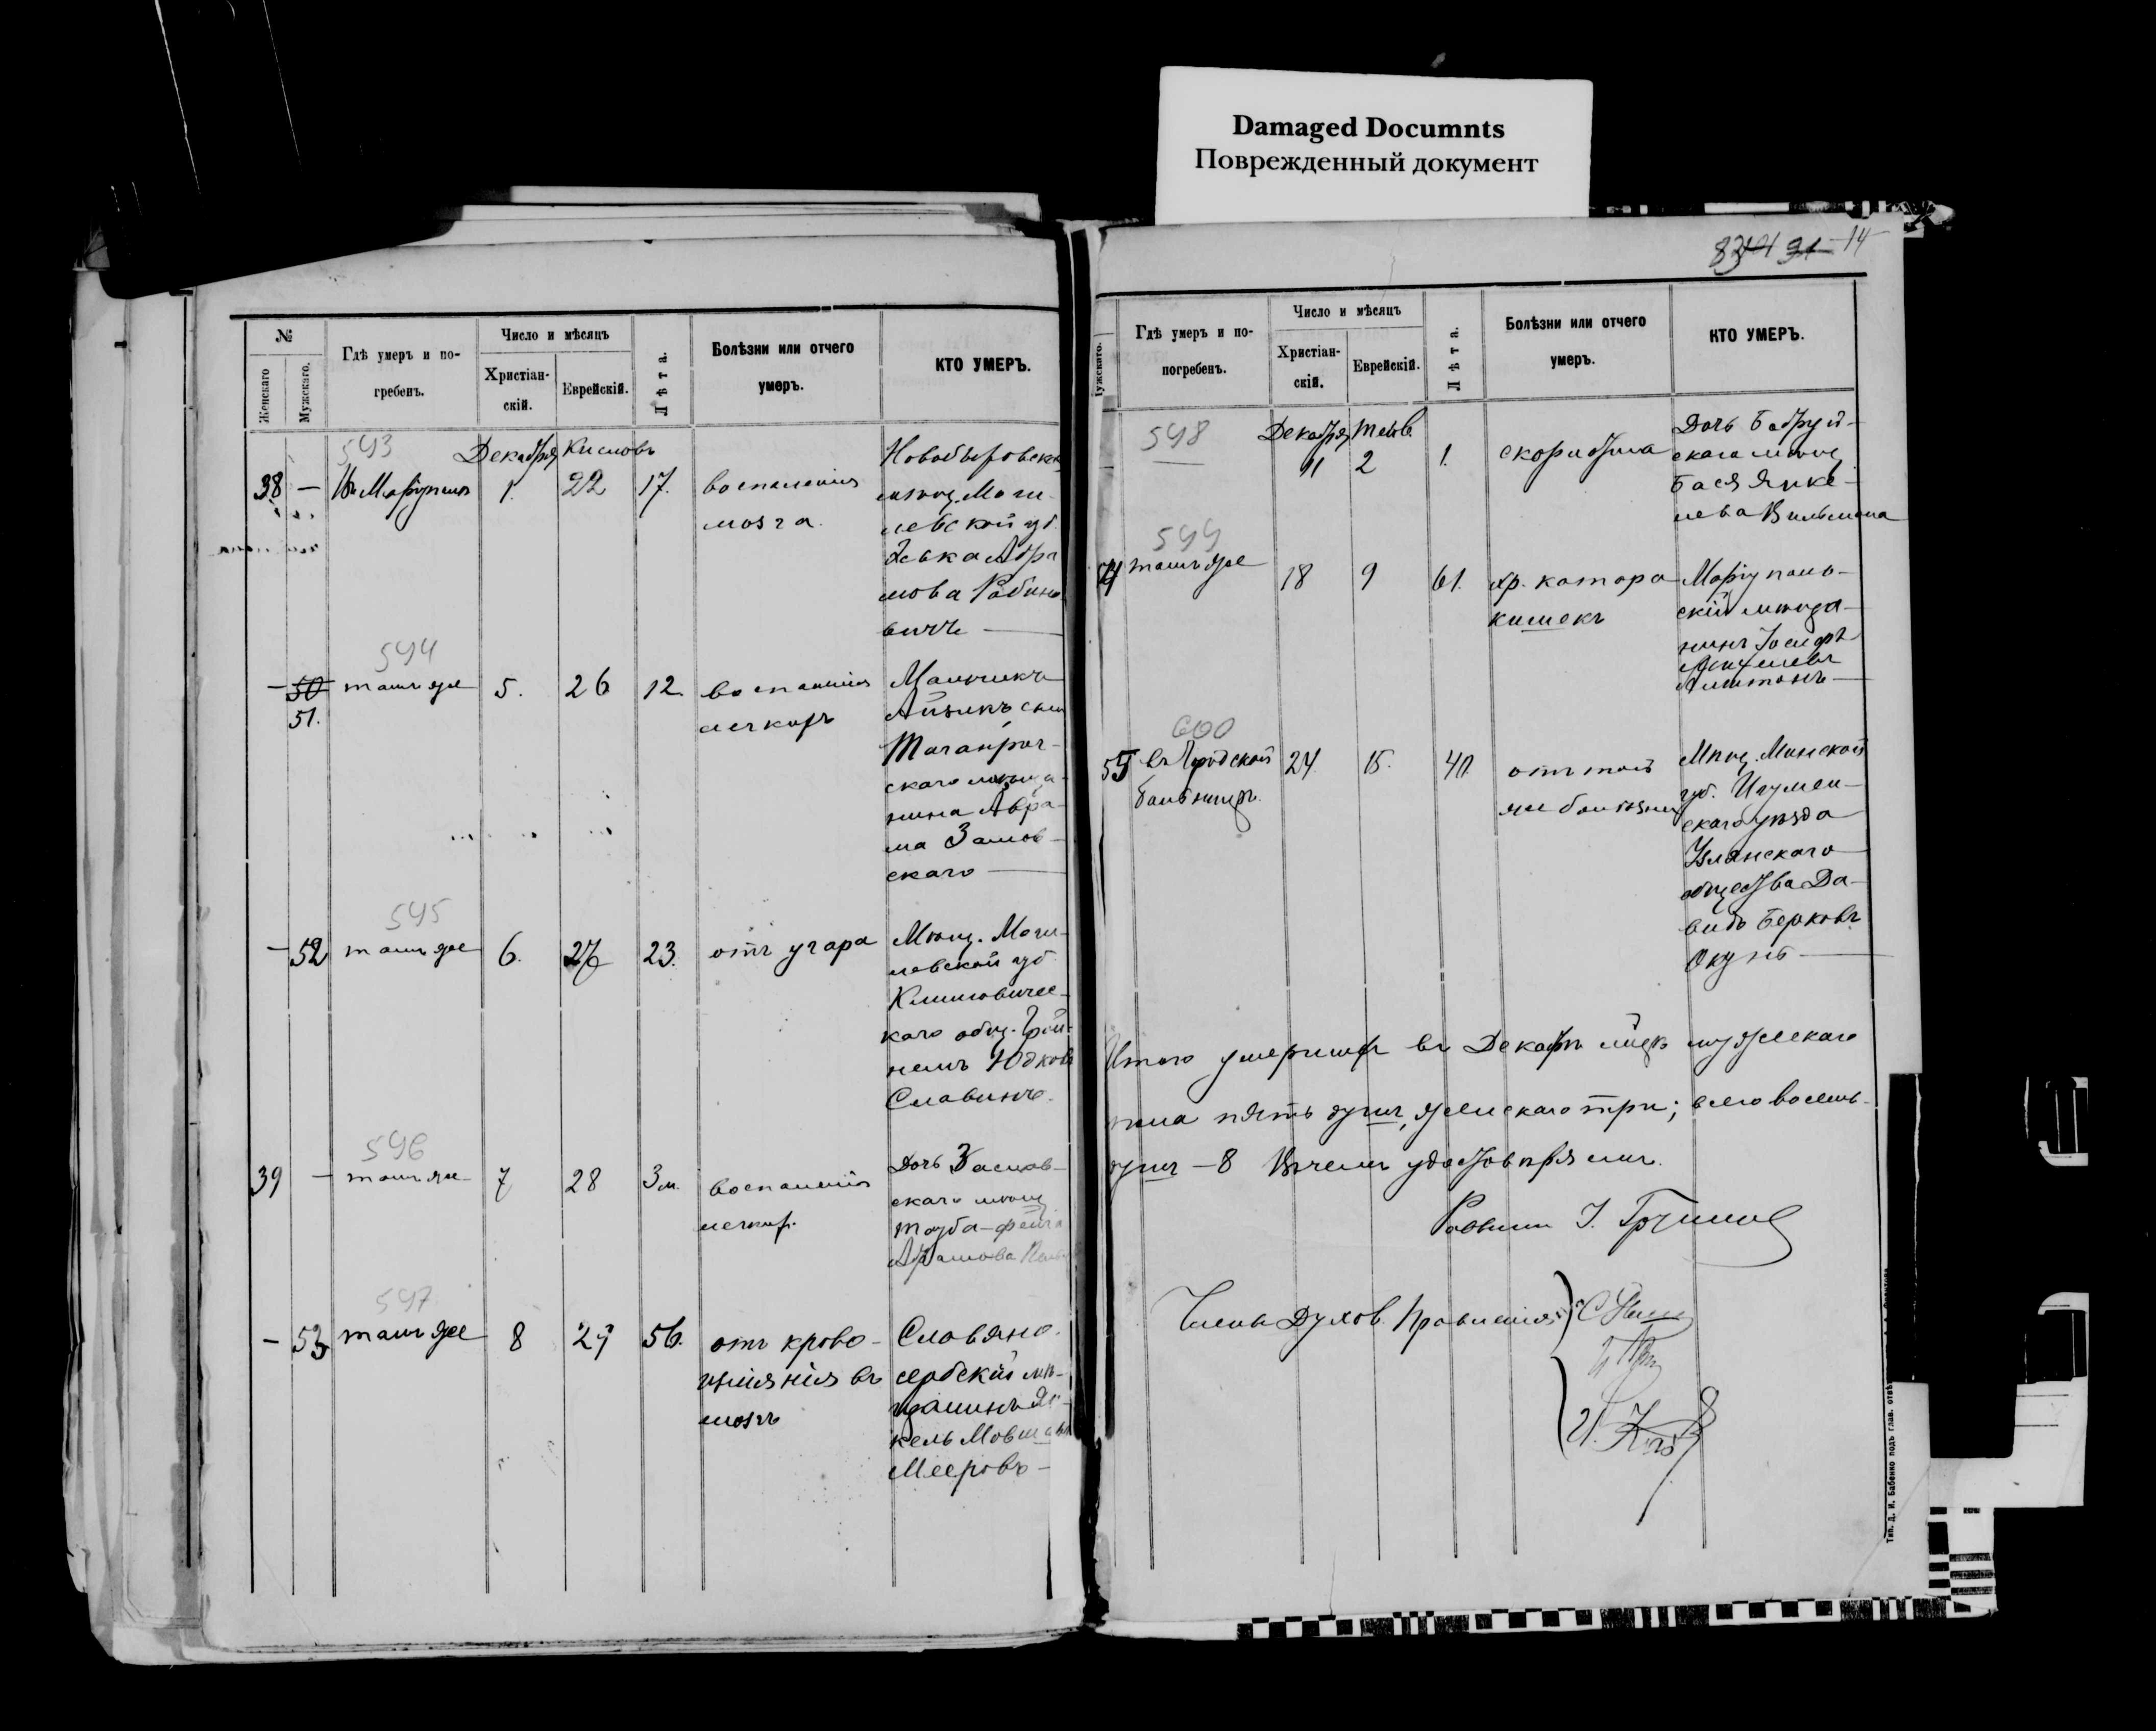 Damaged Documnts
Поврежденный документ
№
Женскаго
Мужскаго.
Гдѣ умеръ и по-
гребенъ.
Число и мѣсяцъ
Христіан-
скій.
Еврейскій.
Лѣта.
Болѣзни или отчего
умеръ.
КТО УМЕРЪ.
593
Декабря Кислевъ
38 — Въ Маріуполѣ 1. 22 17. воспаленія
мозга.
левской губ.
Абра
мова Рабино
вичъ —
594
— 50 тамъ же 5. 26 12. воспаленія
51.
легкихъ
Мальчикъ
Айзикъ сынъ
Таганрог-
скаго мѣща-
нина Авра-
ма Заслав-
скаго —
595
— 52 тамъ же 6. 27 23. отъ угара
Мѣщ. Моги-
левской губ.
Климовичес-
каго общ.
Юдковъ
Славинъ.
596
39 — тамъ же 7 28 3 м. воспаленія
легких.
Дочь Заслав-
скаго мѣщ.
Тауба-Фейга
Абрамова
597
— 53 тамъ же 8 29 56. отъ крово-
изліянія въ
мозгъ
Славяно-
сербскій мѣ-
щанинъ Ян-
кель Мовшовъ
Мееровъ —
14
Мужскаго.
Гдѣ умеръ и по-
погребенъ.
Число и мѣсяцъ
Христіан-
скій.
Еврейскій.
Лѣта.
Болѣзни или отчего
умеръ.
КТО УМЕРЪ.
598
Декабря Тевѣ.
11 2 1. скорлатина
Дочь Бобруй-
скаго мѣщ.
Бася Янке-
лева Вильмана
599
тамъ же 18 9 61. хр. катара
кишекъ
Маріуполь-
скій мѣща-
нинъ Іосифъ
600
55 въ Городской 24 15. 40. отъ той
больницѣ.
же болѣзни
Мѣщ. Минской
губ. Игумен-
скаго уѣзда
Узлянскаго
общества Да-
видъ Берковъ
Окунь —
Итого умершихъ въ Декабрѣ мцѣ мужескаго
пола пять душъ, женскаго три; всего восемь
душъ — 8 Въ чемъ удостовѣряемъ.
Раввинъ
Члены Духов. Правленія
Тип. Д. И. Бабенко подъ глав. отвѣ